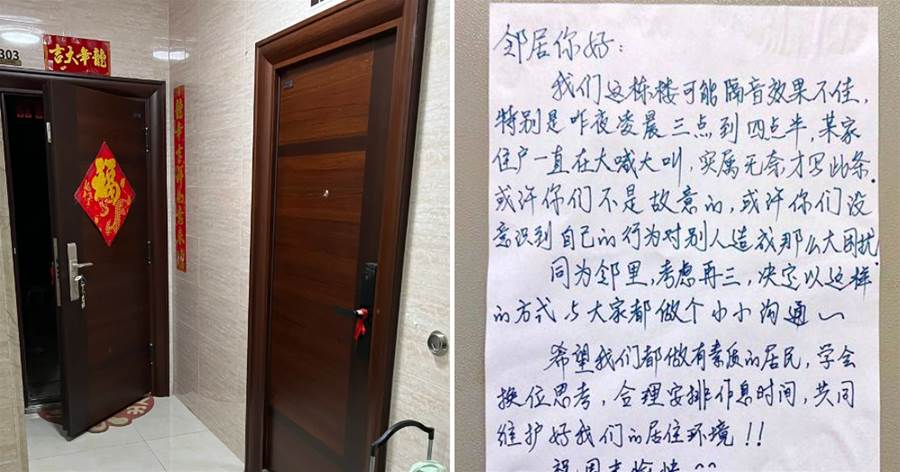 303
龍年大吉
福
邻居你好:
我们这栋楼可能隔音效果不佳,
特别是昨夜凌晨三点到四点半,某家
住户一直在大喊大叫,实属无奈才写此条.
或许你们不是故意的,或许你们没
意识到自己的行为对别人造成那么大困扰.
同为邻里,考虑再三,决定以这样
的方式与大家都做个小小沟通~
希望我们都做有素质的居民,学会
换位思考,合理安排作息时间,共同
维护好我们的居住环境!!
祝周末愉快